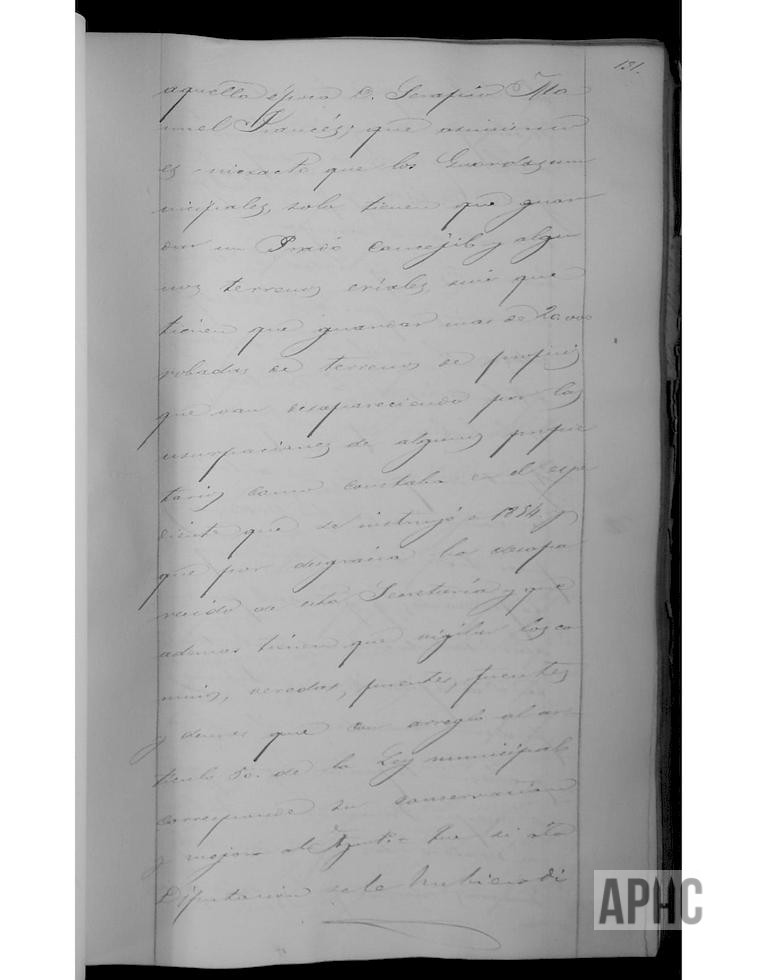 131.
aquella época D. Serafín Ma
nuel Francés; que asimismo
es inexacto que los Guardas mu
nicipales, solo tienen que guar
dar un Prado concejil y algu
nos terrenos eriales, sino que
tienen que guardar mas de 20.000
robadas de terreno de propios
que van desapareciendo por las
usurpaciones de algunos propie
tarios como constaba en el espe
diente que se instruyó en 1854 y
que por desgracia ha desapa
recido de esta Secretaría y que
ademas tienen que vigilar los ca
minos, veredas, puentes, fuentes
y demas que con arreglo al ar
ticulo 50. de la Ley municipal
corresponde su conservacion
y mejora al Aynto. Que si esta
Diputacion se le hubiera di
APHC